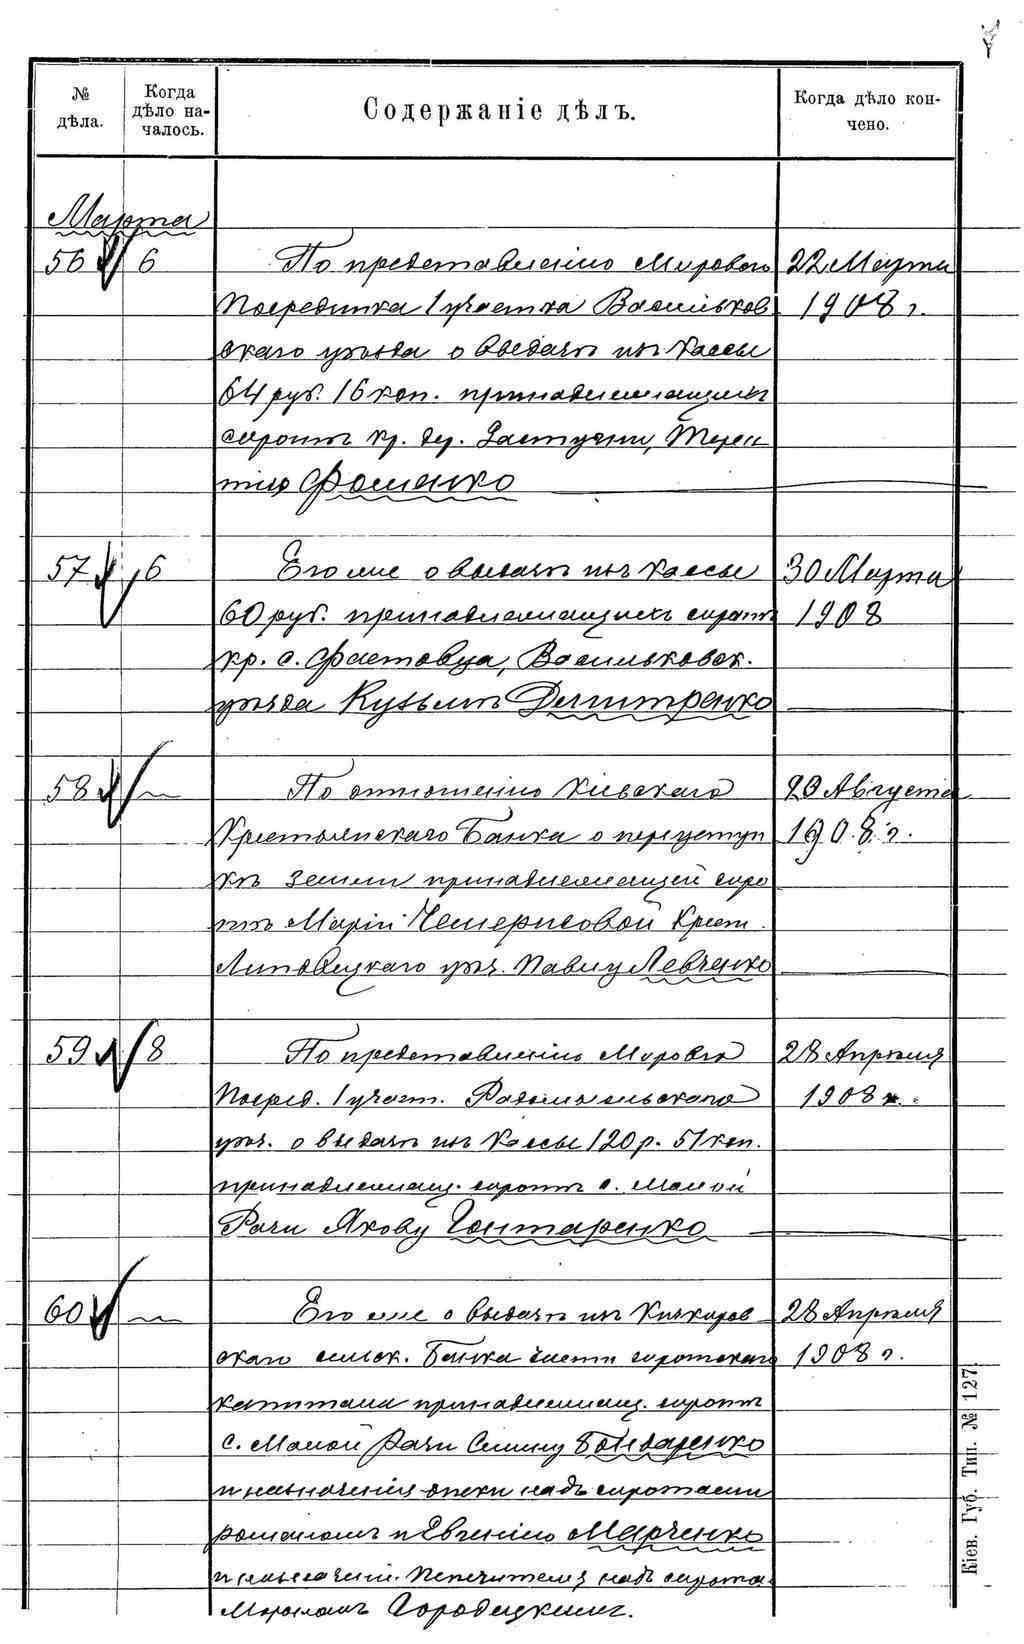 № дѣла.
Когда дѣло началось.
Содержаніе дѣлъ.
Когда дѣло кончено.
Марта
56 6 По представленію Мирового 22 Марта
Посредника 1 участка Васильков 1908 г.
скаго уѣзда о выдачѣ изъ кассы
64 руб. 16 коп. принадлежащихъ
сиротѣ кр. дер. Застугни, Терен
тію Фоменко
57 6 Его же о выдачѣ изъ кассы 30 Марта
60 руб. принадлежащихъ сиротѣ 1908
кр. с. Фастовца, Васильковск.
уѣзда Кузьмѣ Дмитренко
58 — По отношенію Кіевскаго 20 Августа
Крестьянскаго Банка о переуступ 1908 г.
кѣ земли принадлежащей сиро
тѣ Маріи Чемерисовой Крест.
Липовецкаго уѣз. Павлу Левченко
59 8 По представленію Мирового 28 Апрѣля
Посред. 1 участ. Радомысльскаго 1908 г.
уѣз. о выдачѣ изъ кассы 120 р. 51 коп.
принадлежащ. сиротѣ с. Малой
Рачи Якову Гонтаренко
60 — Его же о выдачѣ изъ Кичкиров 28 Апрѣля
скаго сельск. Банка части сиротскаго 1908 г.
капитала принадлежащ. сиротѣ
с. Малой Рачи Семену Бондаренко
и назначенія опеки надъ сиротами
Романомъ и Евгеніею Марченко
и назначеніи Попечителя надъ сирота
Городецкимъ.
Кіев. Губ. Тип. № 127.